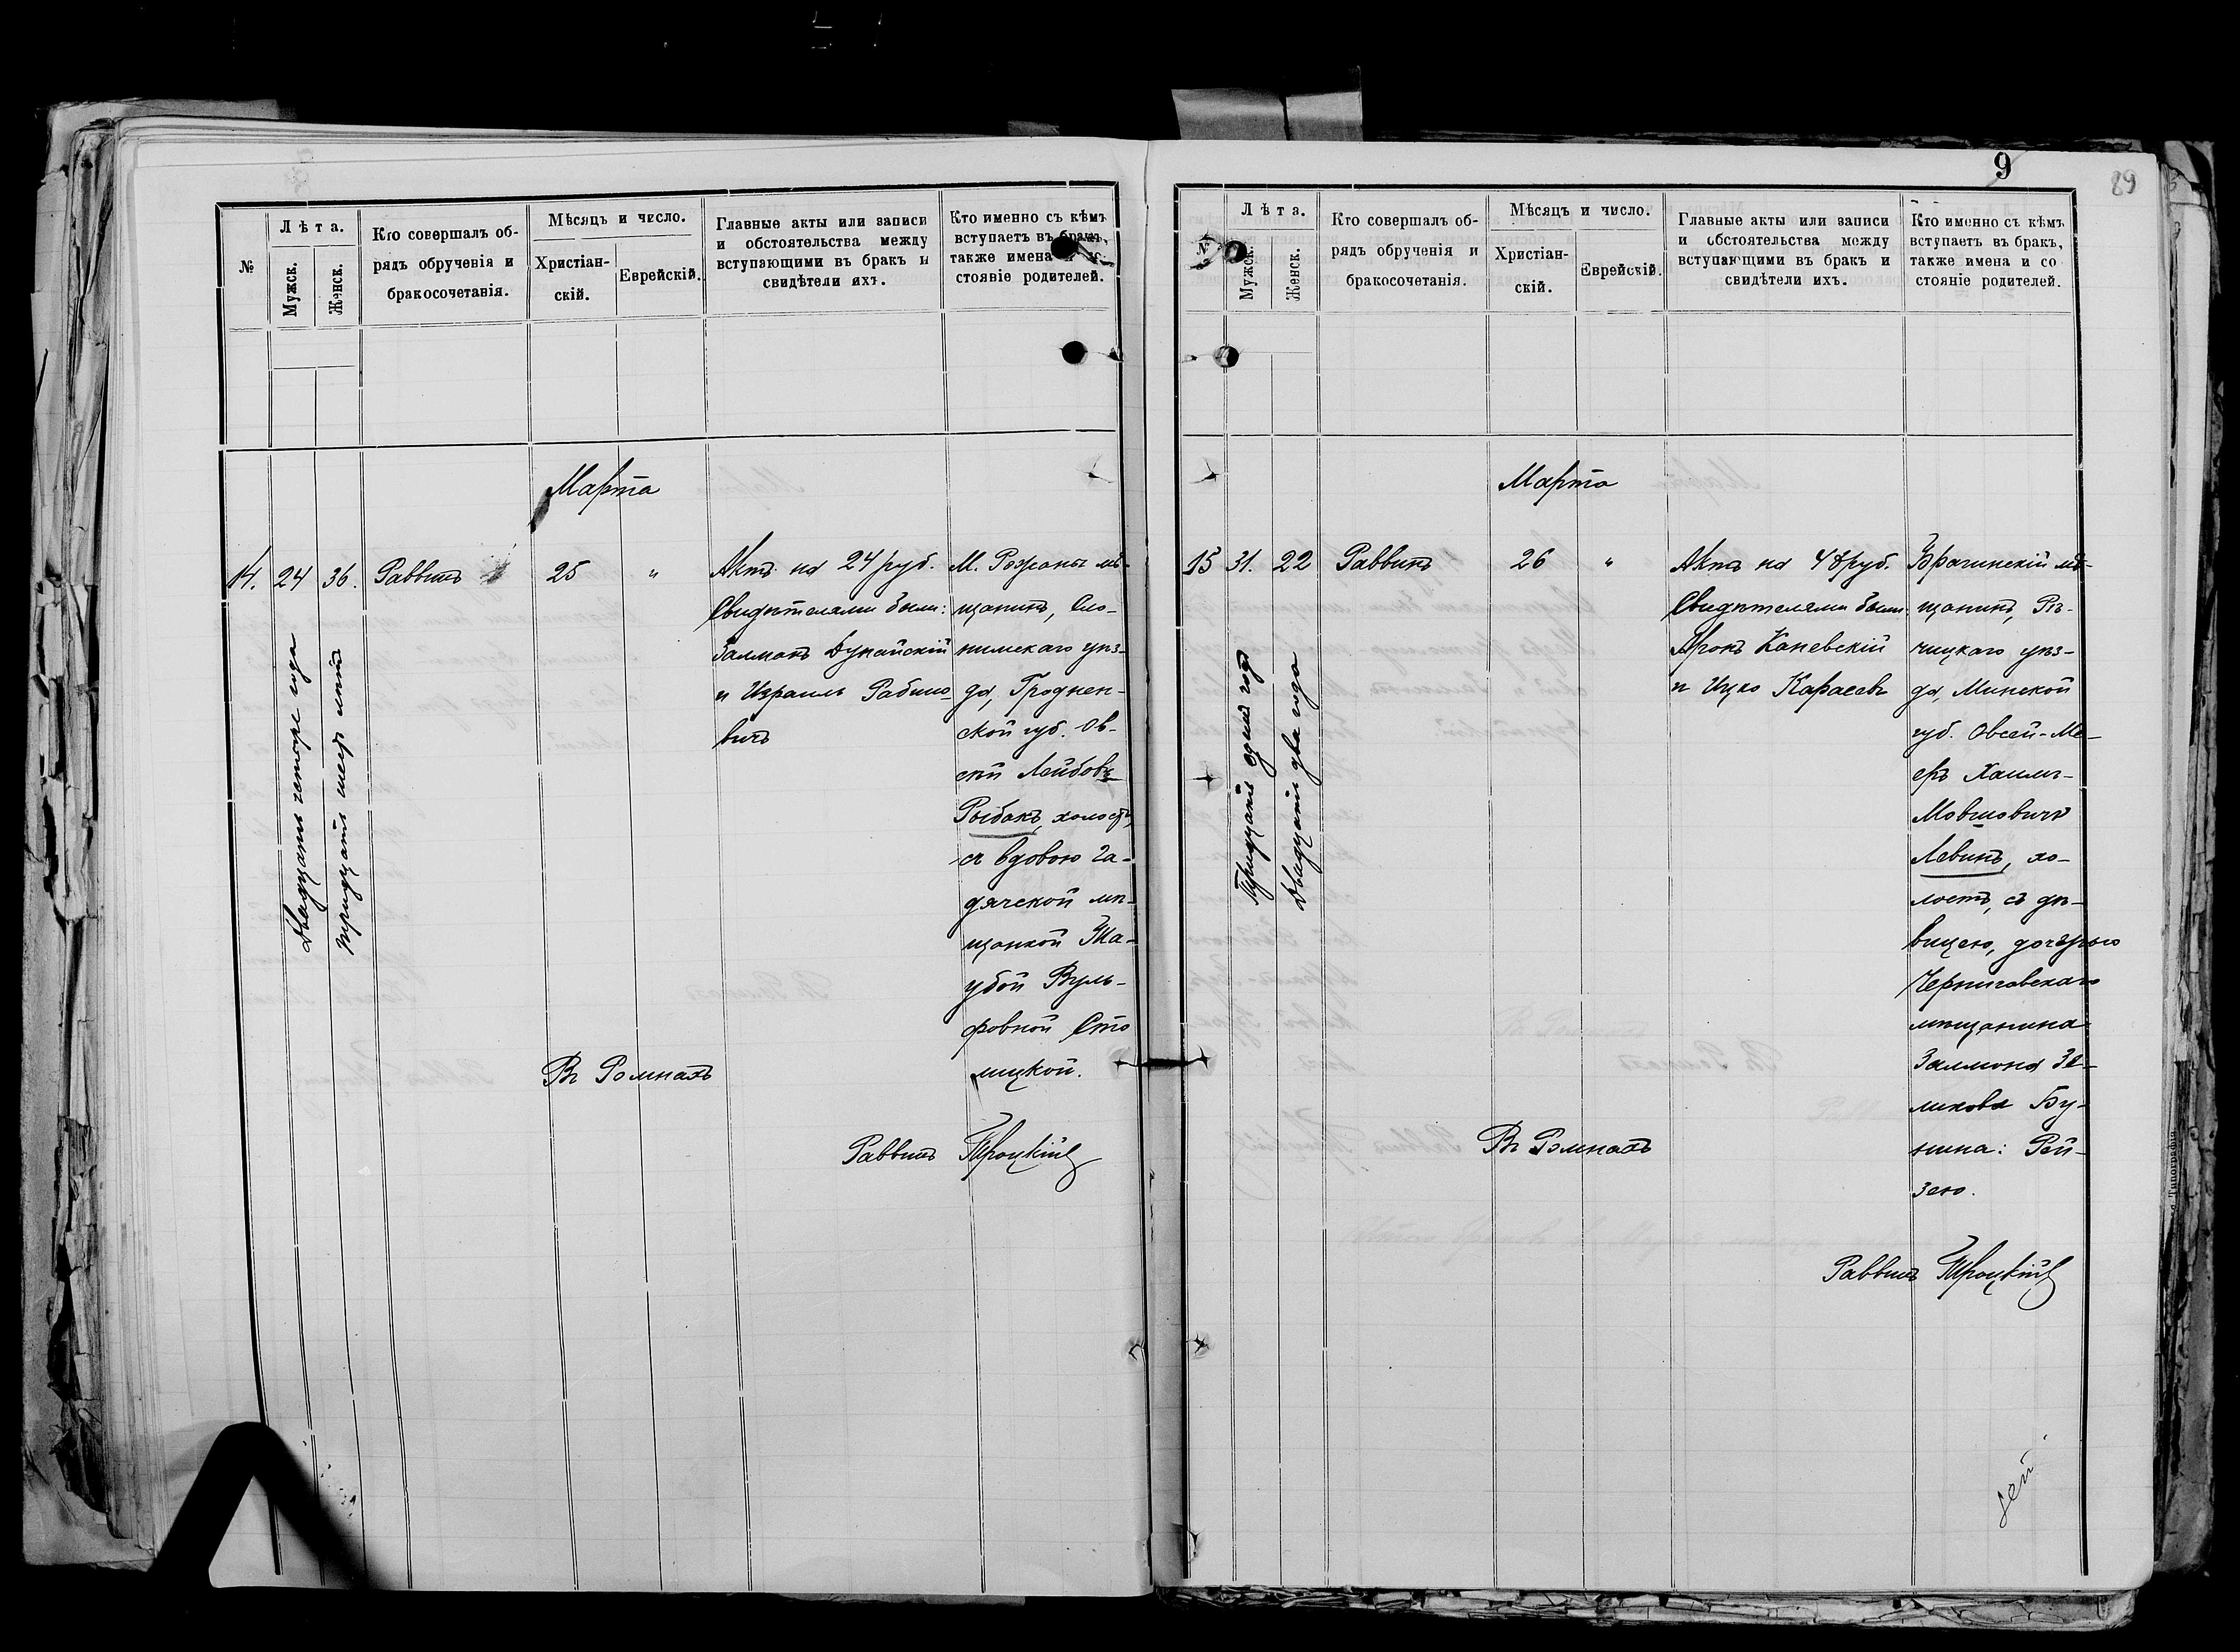 №
Лѣта.
Мужск.
Женск.
Кто совершалъ об-
рядъ обрученія и
бракосочетанія.
Мѣсяцъ и число.
Христіан-
скій.
Еврейскій.
Главные акты или записи
и обстоятельства между
вступающими въ бракъ и
свидѣтели ихъ.
Кто именно съ кѣмъ
вступаетъ въ бракъ,
также имена
стояніе родителей.
Марта
14.
24
36.
Двадцать четыре года
Тридцать шесть лѣтъ
Раввинъ
25
"
Актъ на 24 руб.
Свидѣтелями были:
Залманъ Дунайскій
и Израиль Рабино-
вичъ
М. Рожаны мѣ-
щанинъ, Сло-
нимскаго уѣз-
да, Гроднен-
ской губ. Ов-
сѣй Лейбовъ
Рыбакъ, холостъ,
съ вдовою Га-
дячской мѣ-
щанкой
убой Вуль-
фовной Сто
лицкой.
Въ Ромнахъ
Раввинъ Троцкій
9
89
№
Лѣта.
Мужск.
Женск.
Кто совершалъ об-
рядъ обрученія и
бракосочетанія.
Мѣсяцъ и число.
Христіан-
скій.
Еврейскій.
Главные акты или записи
и обстоятельства между
вступающими въ бракъ и
свидѣтели ихъ.
Кто именно съ кѣмъ
вступаетъ въ бракъ,
также имена и со
стояніе родителей.
Марта
15
31.
22
Тридцать одинъ годъ
Двадцать два года
Раввинъ
26
"
Актъ на 48 руб.
Свидѣтелями были:
Аронъ Каневскій
и Ицко Карасевъ
мѣ-
щанинъ, Рѣ-
чицкаго уѣз-
да, Минской
губ. Овсей-Ме-
еръ Хаимъ-
Мовшовичъ
Левинъ, хо-
лостъ, съ дѣ-
вицею, дочерью
Черниговскаго
мѣщанина
Залмана Зе-
ликова Бу-
нина: Рей-
зею.
Въ Ромнахъ
Раввинъ Троцкій